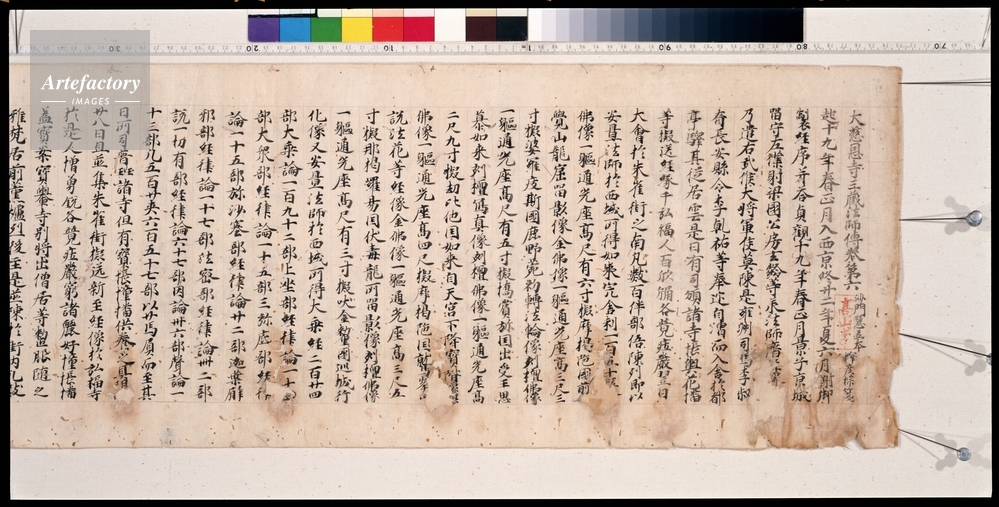 大慈恩寺三蔵法師傳卷第六
起十九年春正月入西京終廿二年夏六月謝御
製經序并答貞觀十九年春正月景子京城
留守左僕射梁國公房玄齡等承法師
乃遣右武作大将軍侯莫陳寔雍州司馬李叔
眘長安縣令李乾祐等奉迎自漕而入舍於都
亭驛其徒若雲是日有司頒諸寺帳輿花幡
等擬送經像于弘福人百欣踊各競莊嚴翌日
大會於朱雀街之南凡數百件部伍陳列即以
安置法師於西域所得如来完舍利一百五十
佛像一軀通光座高尺有六寸擬摩揭陁國前
覺山龍窟留影像金佛像一軀通光座高三尺三
寸擬婆羅疺斯國鹿野菀初轉法輪像刻檀佛像
一軀通光座高尺有五寸擬憍賞弥國出愛王思
慕如来刻檀寫真像刻檀佛像一軀通光座高
二尺九寸擬劫比他國如来自天宮下降寶
佛像一軀通光座高四尺擬摩揭陁國鷲峯
説法花等經像金佛像一軀通光座高三尺五
寸擬那揭羅曷國伏毒龍所留影像刻檀佛像
一軀通光座高尺有三寸擬吠舍釐國巡城行
化像又安置法師於西域所得大乘經二百廿四
部大乘論一百九十二部上坐部經律論一十
部大衆部經律論一十五部三弥底部經律
論一十五部弥沙塞部經律論廿二部迦葉臂
耶部經律論一十七部法密部經律論卌二部
説一切有部經律論六十七部因論卅六部聲論一
十三部凡五百廿夾六百五十七部以廿馬負而至其
日所司普班諸寺但有寶帳幢幡供養之具
廿八日旦並集朱雀街擬迎新至經像於弘福寺
於是人增勇鋭各競莊嚴窮諸麗好幢帳幡
蓋寶案寶轝寺别將出僧尼等整服隨之
雅梵居前薫爐列後至是並陳於街内凡数
Artefactory
IMAGES